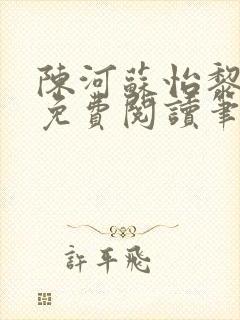 陳河蘇怡黎
免費閱讀筆
許平飛